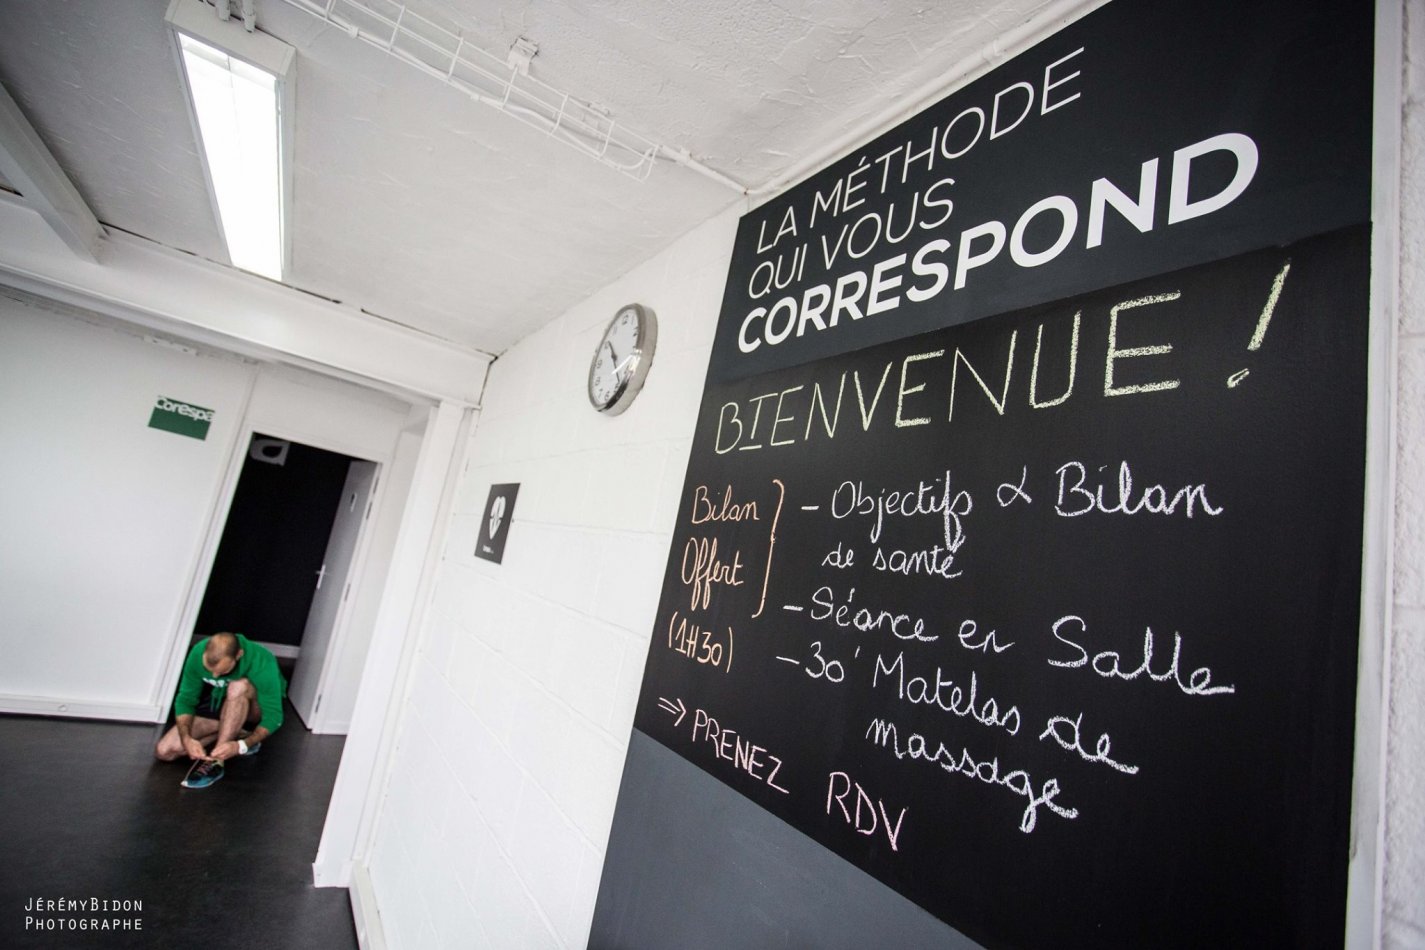 LA MÉTHODE
QUI VOUS
CORRESPOND
BIENVENUE !
Bilan
Offert
(1H30)
- Objectifs & Bilan
de santé
- Séance en Salle
- 30' Matelas de
massage
⇒ PRENEZ RDV
JÉRÉMYBIDON
PHOTOGRAPHE